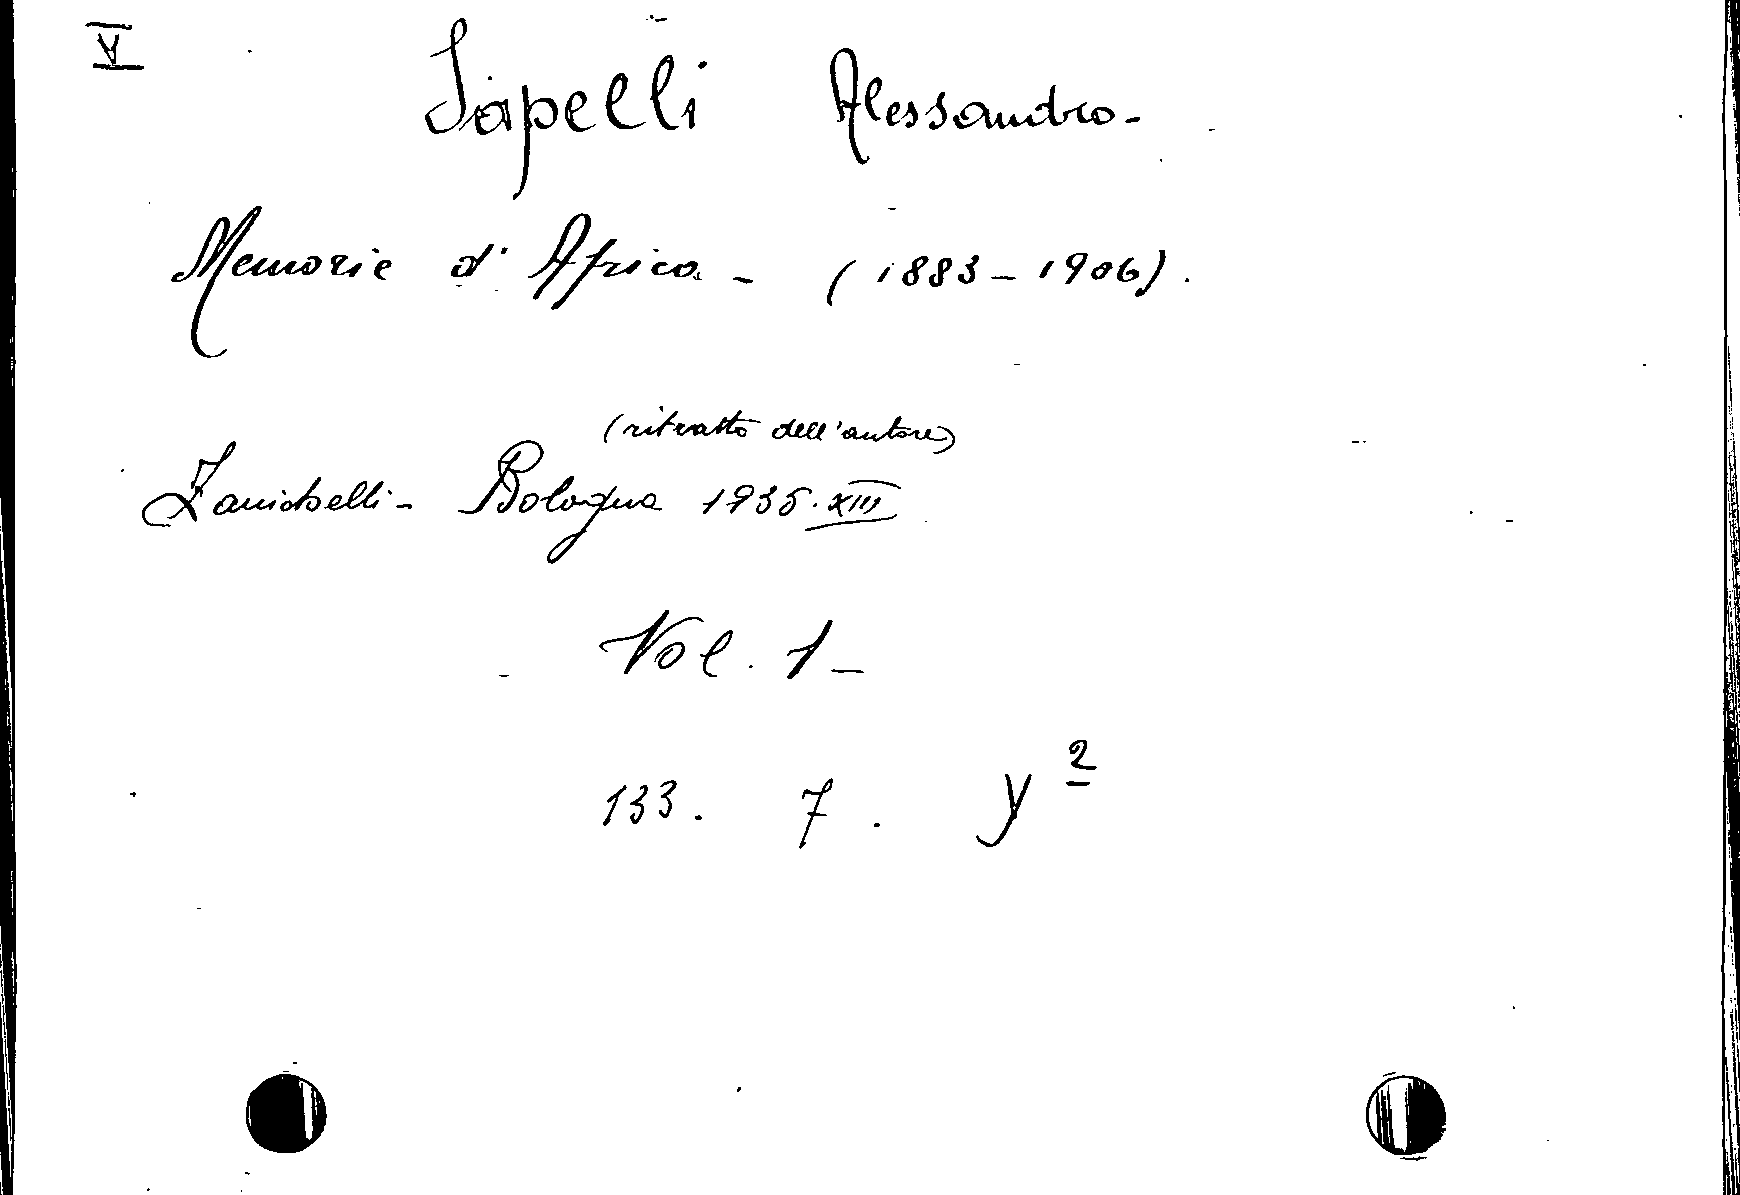 V
Sapelli Alessandro -
Memorie d'Africa - (1883 - 1906).
(ritratto dell'autore)
Zanichelli - Bologna 1935. XIII
Vol. 1 -
133. 7. y²